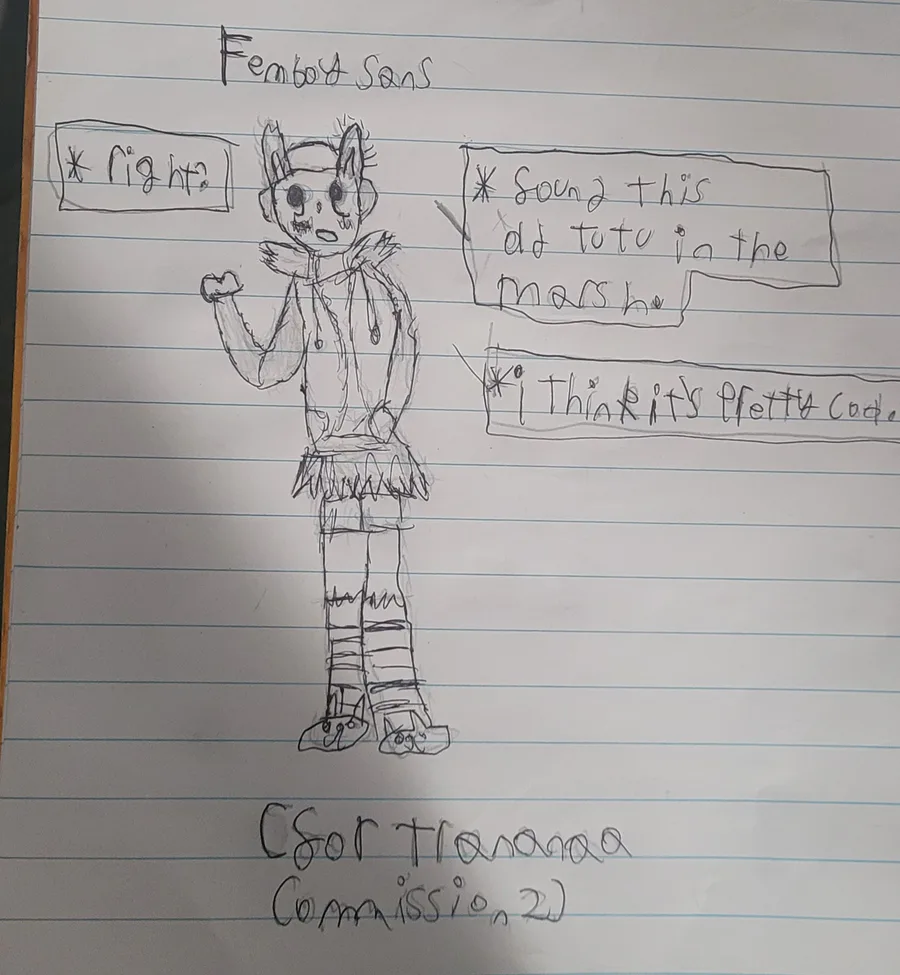 Femboy Sans
* right?
* found this
old tutu in the
marsh.
* i think it's pretty cool.
(for trananaa
Commission 2)